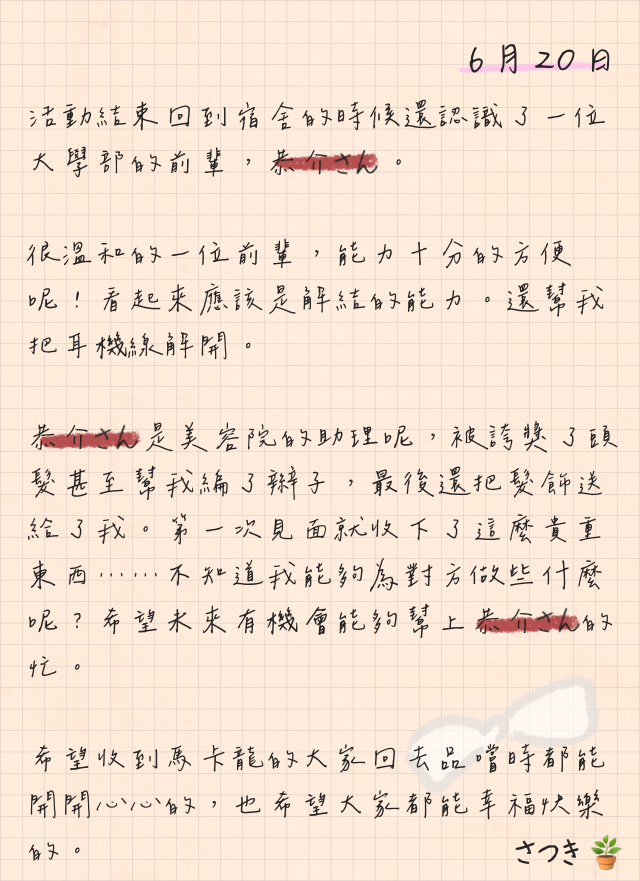 6月20日
活動結束回到宿舍的時候還認識了一位
大學部的前輩，恭介さん。
很溫和的一位前輩，能力十分的方便
呢！看起來應該是解結的能力。還幫我
把耳機線解開。
恭介さん是美容院的助理呢，被誇獎了頭
髮甚至幫我編了辮子，最後還把髮飾送
給了我。第一次見面就收下了這麼貴重
東西……不知道我能夠為對方做些什麼
呢？希望未來有機會能夠幫上恭介さん的
忙。
希望收到馬卡龍的大家回去品嚐時都能
開開心心的，也希望大家都能幸福快樂
的。
さつき